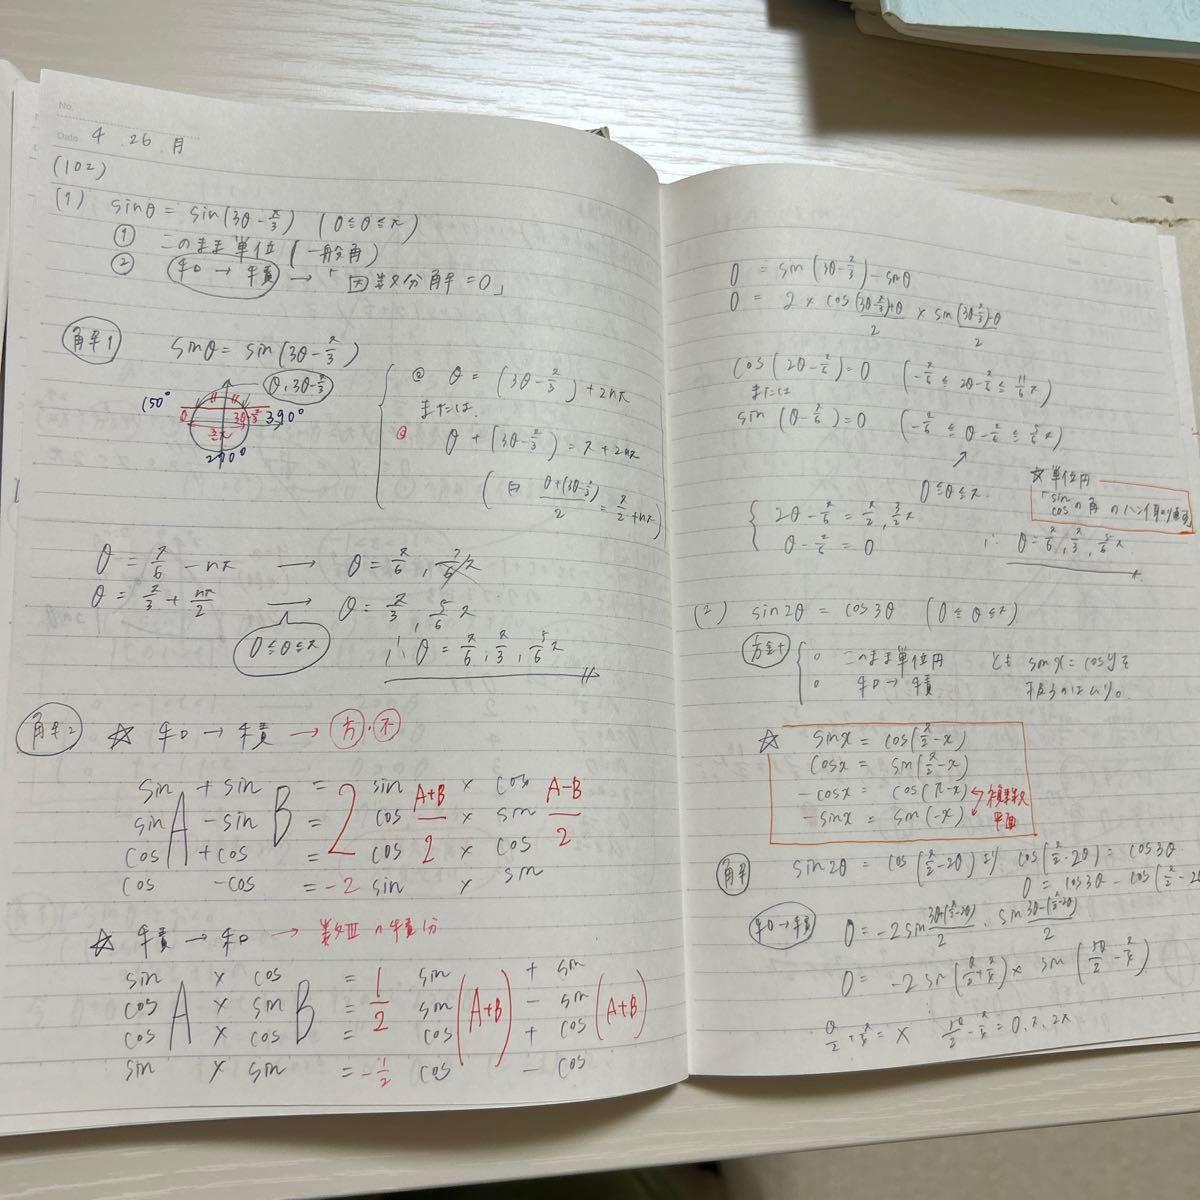 No.
Date 4 . 26 . 月
(102)
(1) sinθ = sin(3θ-π/3) (0≦θ≦π)
① このまま単位(一般角)
② 和→積 →「因数分解=0」
解1 sinθ = sin(3θ-π/3)
θ, 3θ-π/3
150°
θ 3θ-π/3 390°
270°
◎ θ = (3θ-π/3) + 2nπ
または
◎ θ + (3θ-π/3) = π + 2nπ
(θ+(3θ-π/3))/2 = π/2 + nπ)
θ = π/6 - nπ → θ = π/6, 7/6π
θ = π/3 + nπ/2 → θ = π/3, 5/6π
0≦θ≦π ∴ θ = π/6, π/3, 5/6π
解2 ☆ 和→積 → 方・不
sin A + sin B = 2 sin (A+B)/2 × cos (A-B)/2
sin A - sin B = 2 cos (A+B)/2 × sin (A-B)/2
cos A + cos B = 2 cos (A+B)/2 × cos (A-B)/2
cos - cos = -2 sin × sin
☆ 積→和 → 数Ⅲの積分
sin A × cos B = 1/2 sin(A+B) + sin(A+B)
cos A × sin B = 1/2 sin(A+B) - sin(A+B)
cos A × cos B = 1/2 cos(A+B) + cos(A+B)
sin × sin = -1/2 cos - cos
0 = sin(3θ-π/3) - sinθ
0 = 2 × cos ((3θ-π/3)+θ)/2 × sin ((3θ-π/3)-θ)/2
cos(2θ-π/6) = 0 (-π/6 ≦ 2θ-π/6 ≦ 11/6π)
または
sin(θ-π/6) = 0 (-π/6 ≦ θ-π/6 ≦ 5/6π)
0≦θ≦π
☆ 単位円
「sin cos の角の
2θ-π/6 = π/2, 3/2π
θ-π/6 = 0
∴ θ = π/6, π/3, 5/6π
(2) sin2θ = cos3θ (0≦θ≦π)
方針
○ このまま単位円
○ 和→積
とも sinx = cosyを
☆ sinx = cos(π/2-x)
cosx = sin(π/2-x)
-cosx = cos(π-x)
-sinx = sin(-x)
複素数平面
解 sin2θ = cos(π/2-2θ) より cos(π/2-2θ) = cos3θ
0 = cos3θ - cos(π/2-2θ
和→積 0 = -2 sin (3θ+(π/2-2θ))/2 · sin (3θ-(π/2-2θ))/2
0 = -2 sin(θ/2+π/4) × sin(5θ/2-π/4)
θ/2+π/4 = × 5θ/2-π/4 = 0, π, 2π